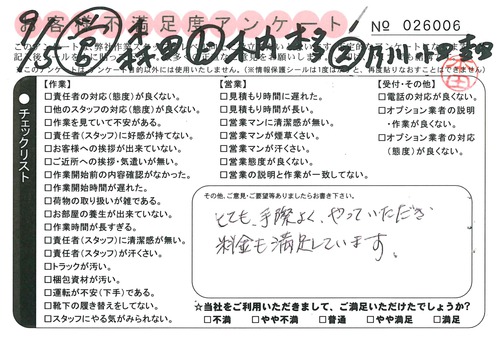 お客様不満足度アンケート
№ 026006
9/5
チェックリスト
【作業】
□責任者の対応(態度)が良くない。
□他のスタッフの対応(態度)が良くない。
□作業を見ていて不安がある。
□責任者(スタッフ)に好感が持てない。
□お客様への挨拶が出来ていない。
□ご近所への挨拶・気遣いが無い。
□作業開始前の内容確認がなかった。
□作業開始時間が遅れた。
□荷物の取り扱いが雑である。
□お部屋の養生が出来ていない。
□作業時間が長すぎる。
□責任者(スタッフ)に清潔感が無い。
□責任者(スタッフ)が汗くさい。
□トラックが汚い。
□梱包資材が汚い。
□運転が不安(下手)である。
□靴下の履き替えをしてない。
□スタッフにやる気がみられない。
【営業】
□見積もり時間に遅れた。
□見積もり時間が長い。
□営業マンに清潔感が無い。
□営業マンが煙草くさい。
□営業マンが汗くさい。
□営業態度が良くない。
□営業の説明と作業が一致してない。
【受付・その他】
□電話の対応が良くない。
□オプション業者の説明
・作業が良くない。
□オプション業者の対応
(態度)が良くない。
その他、ご意見・ご要望等ありましたらお書き下さい。
とても、手際よく、やっていただき
料金も満足しています。
☆当社をご利用いただきまして、ご満足いただけたでしょうか?
□不満 □やや不満 □普通 □やや満足 □満足